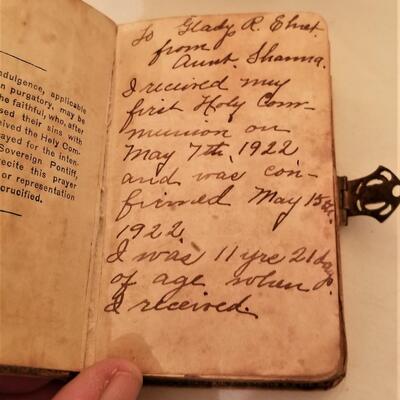 ndulgence, applicable
n purgatory, may be
he faithful, who, after
sed their sins with
eived the Holy Com-
rayed for the inten-
Sovereign Pontiff,
ecite this prayer
or representation
crucified.
To Gladys R. Ehret.
from
Aunt. Shanna.
I received my
first Holy Com-
munion on
May 7th, 1922
and was con-
firmed May 15th.
1922
I was 11 yrs 21 days
of age when
I received.